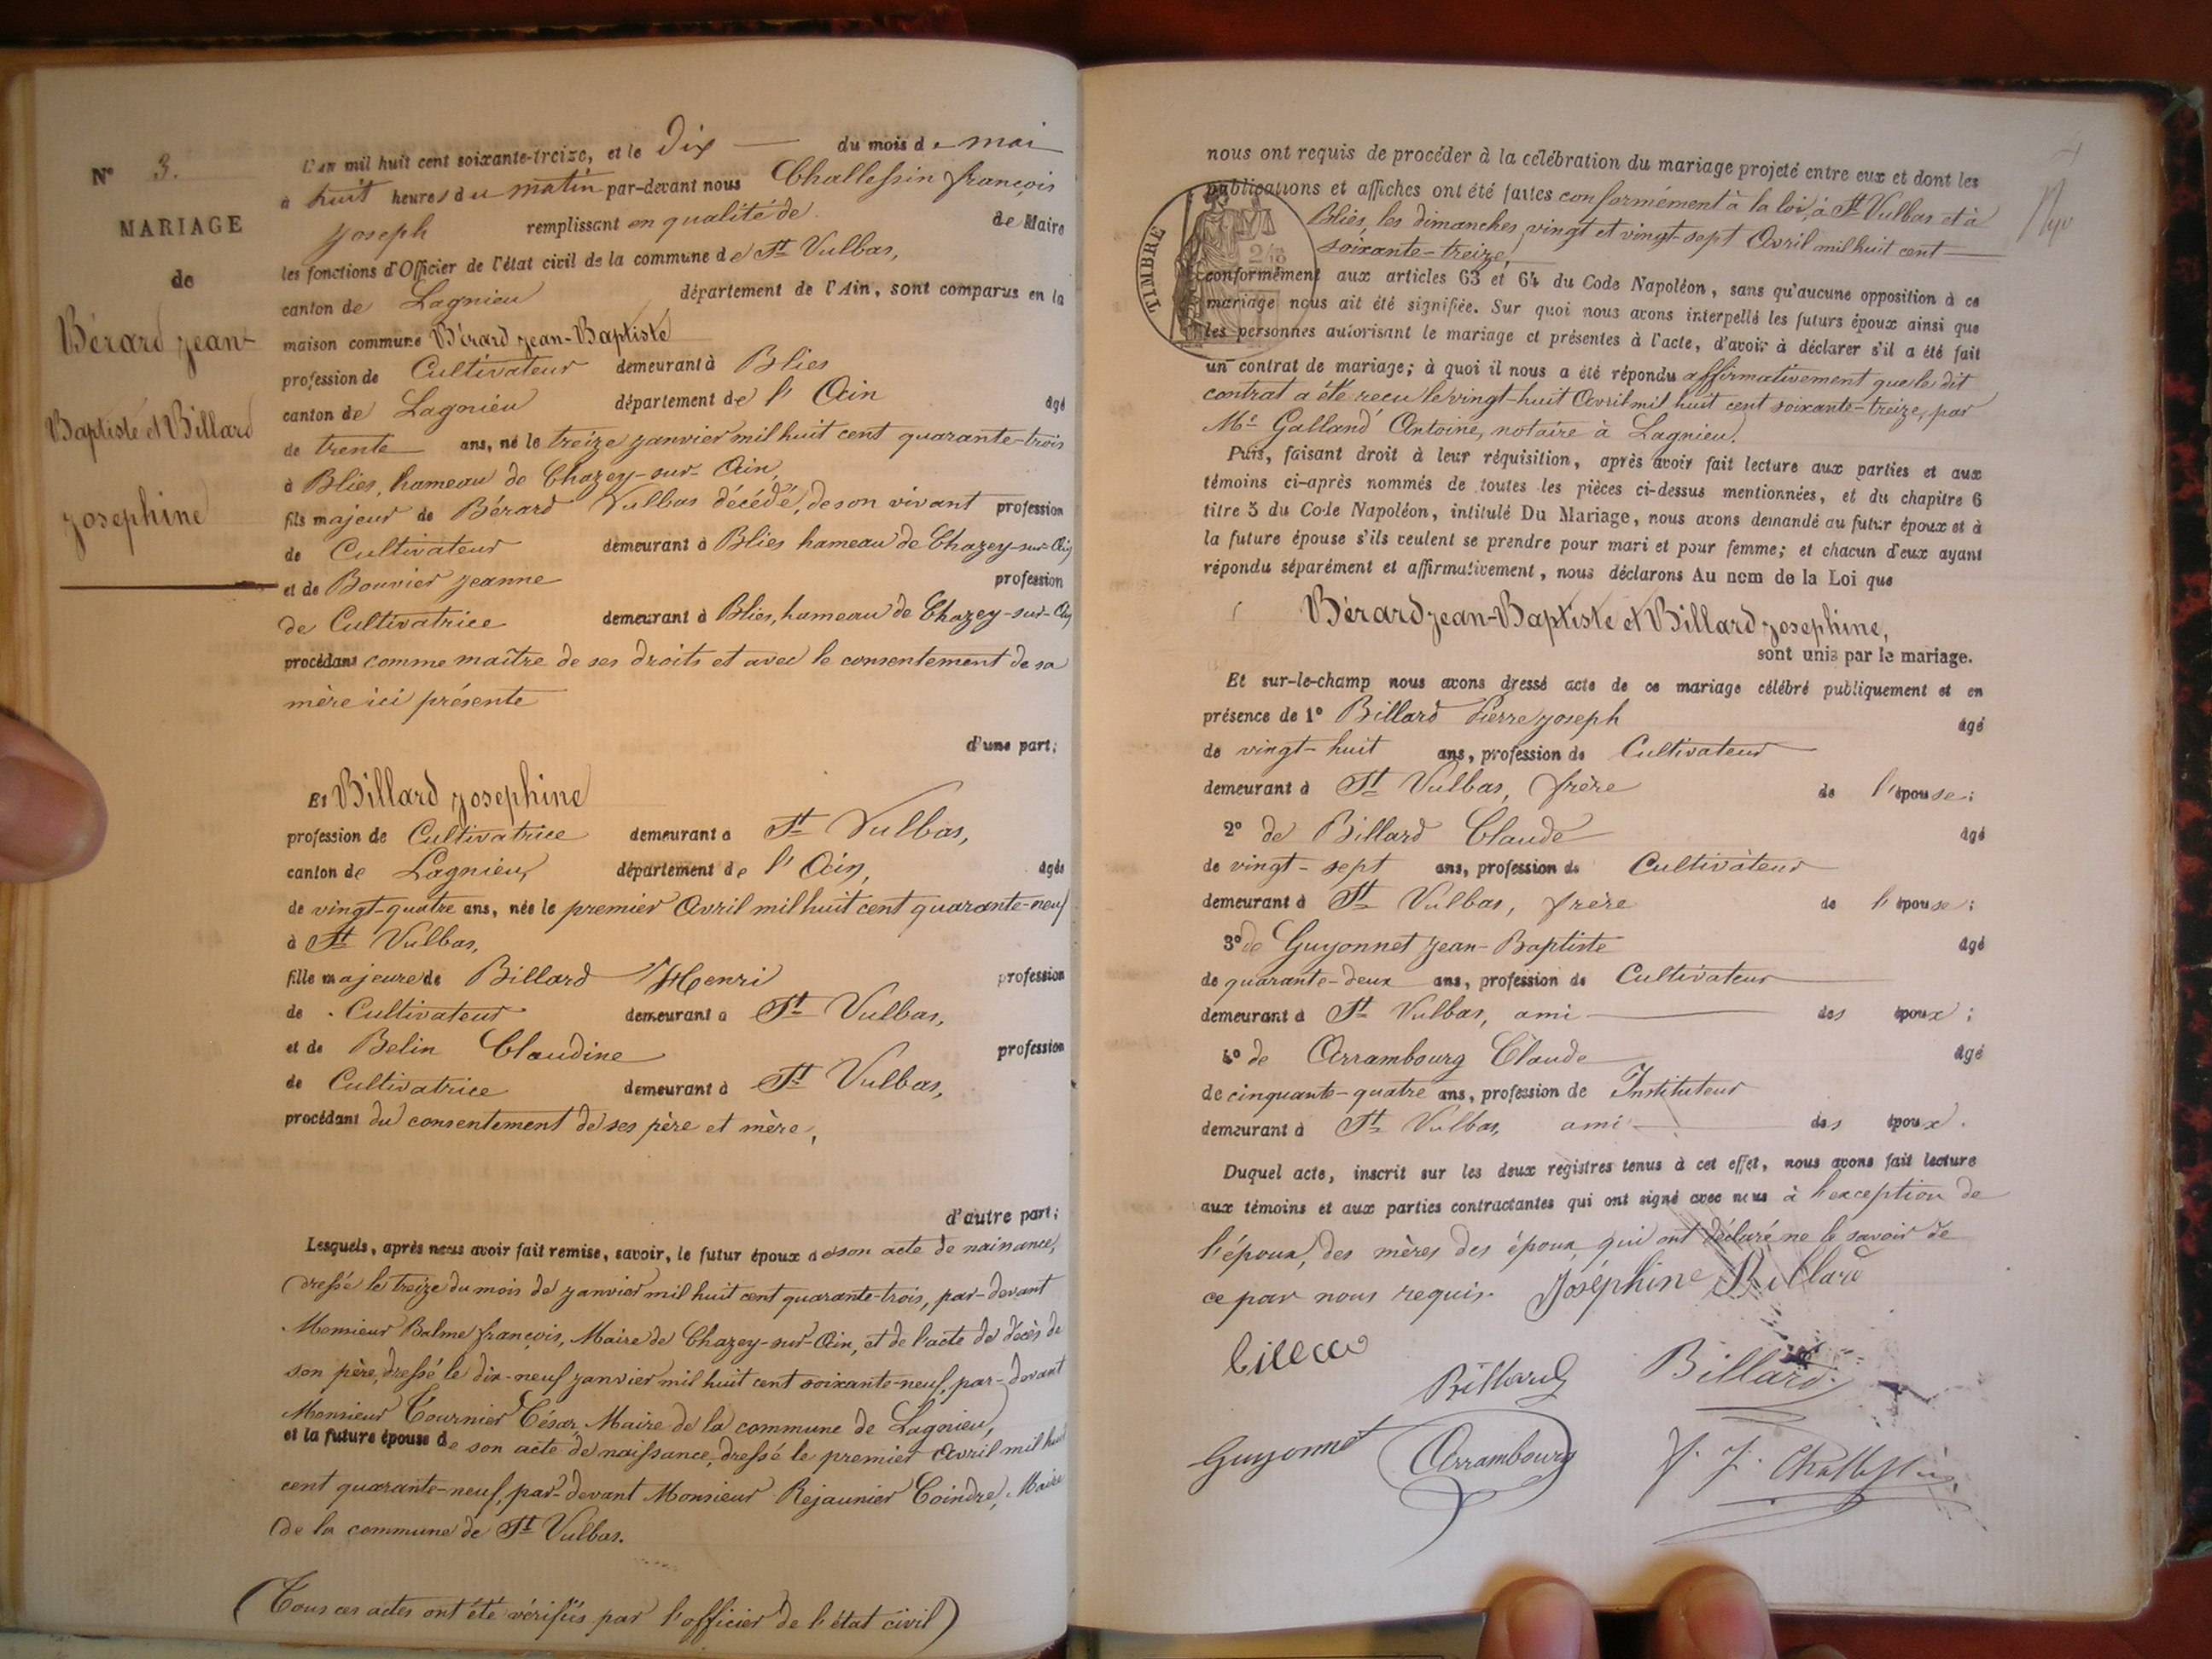 N° 3.
MARIAGE
de
Bérard Jean-
Baptiste et Billard
Josephine
L'an mil huit cent soixante-treize, et le Dix du mois de mai
à huit heures du matin par-devant nous Challessin françois
Joseph remplissant en qualité de de Maire
les fonctions d'Officier de l'état civil de la commune de St Vulbas,
canton de Lagnieu département de l'Ain, sont comparus en la
maison commune Bérard Jean-Baptiste
profession de Cultivateur demeurant à Blies
canton de Lagnieu département de l'Ain âgé
de trente ans, né le treize janvier mil huit cent quarante-trois
à Blies, hameau de Chazey-sur-Ain,
fils majeur de Bérard Vulbas décédé, de son vivant profession
de Cultivateur demeurant à Blies hameau de Chazey-sur-Ain
et de Bouvier Jeanne profession
de Cultivatrice demeurant à Blies, hameau de Chazey-sur-Ain
procédant comme maître de ses droits et avec le consentement de sa
mère ici présente
d'une part;
Et Billard Josephine
profession de Cultivatrice demeurant à St Vulbas,
canton de Lagnieu, département de l'Ain, âgée
de vingt-quatre ans, née le premier Avril mil huit cent quarante-neuf
à St Vulbas,
fille majeure de Billard Henri profession
de Cultivateur demeurant à St Vulbas,
et de Belin Claudine profession
de Cultivatrice demeurant à St Vulbas,
procédant du consentement de ses père et mère,
d'autre part;
Lesquels, après nous avoir fait remise, savoir, le futur époux de son acte de naissance,
dressé le treize du mois de janvier mil huit cent quarante-trois, par-devant
Monsieur Balme françois, Maire de Chazey-sur-Ain, et de l'acte de décès de
son père, dressé le dix-neuf janvier mil huit cent soixante-neuf, par-devant
Monsieur Tournier César, Maire de la commune de Lagnieu,
et la future épouse de son acte de naissance, dressé le premier Avril mil huit
cent quarante-neuf, par-devant Monsieur Rejaunier Coindre, Maire
de la commune de St Vulbas.
(Tous ces actes ont été vérifiés par l'officier de l'état civil)
nous ont requis de procéder à la célébration du mariage projeté entre eux et dont les
publications et affiches ont été faites conformément à la loi, à St Vulbas et à
Blies, les dimanches, vingt et vingt-sept Avril mil huit cent
soixante-treize,
TIMBRE
conformément aux articles 63 et 64 du Code Napoléon, sans qu'aucune opposition à ce
mariage nous ait été signifiée. Sur quoi nous avons interpellé les futurs époux ainsi que
les personnes autorisant le mariage et présentes à l'acte, d'avoir à déclarer s'il a été fait
un contrat de mariage; à quoi il nous a été répondu affirmativement que le dit
contrat a été reçu le vingt-huit Avril mil huit cent soixante-treize, par
Me Galland Antoine, notaire à Lagnieu.
Puis, faisant droit à leur réquisition, après avoir fait lecture aux parties et aux
témoins ci-après nommés de toutes les pièces ci-dessus mentionnées, et du chapitre 6
titre 5 du Code Napoléon, intitulé Du Mariage, nous avons demandé au futur époux et à
la future épouse s'ils veulent se prendre pour mari et pour femme; et chacun d'eux ayant
répondu séparément et affirmativement, nous déclarons Au nom de la Loi que
Bérard Jean-Baptiste et Billard Josephine,
sont unis par le mariage.
Et sur-le-champ nous avons dressé acte de ce mariage célébré publiquement et en
présence de 1° Billard Pierre Joseph âgé
de vingt-huit ans, profession de Cultivateur
demeurant à St Vulbas, frère de l'épouse;
2° de Billard Claude âgé
de vingt-sept ans, profession de Cultivateur
demeurant à St Vulbas, frère de l'épouse;
3° de Guyonnet Jean-Baptiste âgé
de quarante-deux ans, profession de Cultivateur
demeurant à St Vulbas, ami des époux;
4° de Arrambourg Claude âgé
de cinquante-quatre ans, profession de Instituteur
demeurant à St Vulbas, ami des époux.
Duquel acte, inscrit sur les deux registres tenus à cet effet, nous avons fait lecture
aux témoins et aux parties contractantes qui ont signé avec nous à l'exception de
l'époux, des mères des époux, qui ont déclaré ne le savoir de
ce par nous requis. Joséphine Billard
Billard Billard
Guyonnet Arrambourg f. J. Challessin